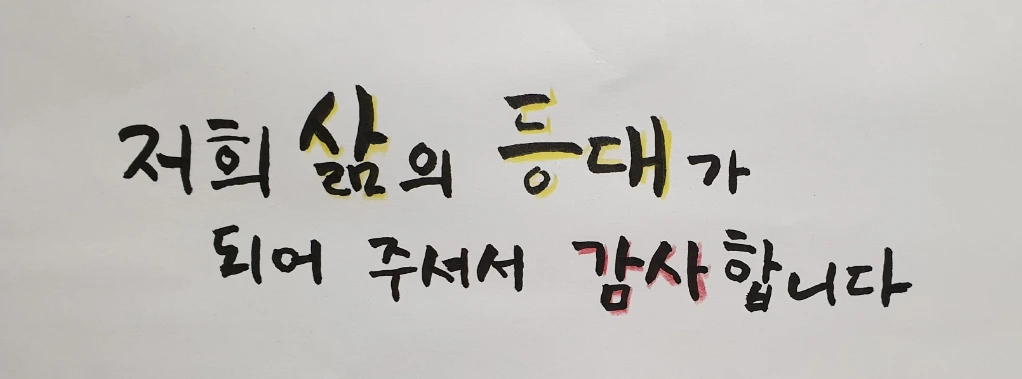 저희 삶의 등대가
되어 주셔서 감사합니다